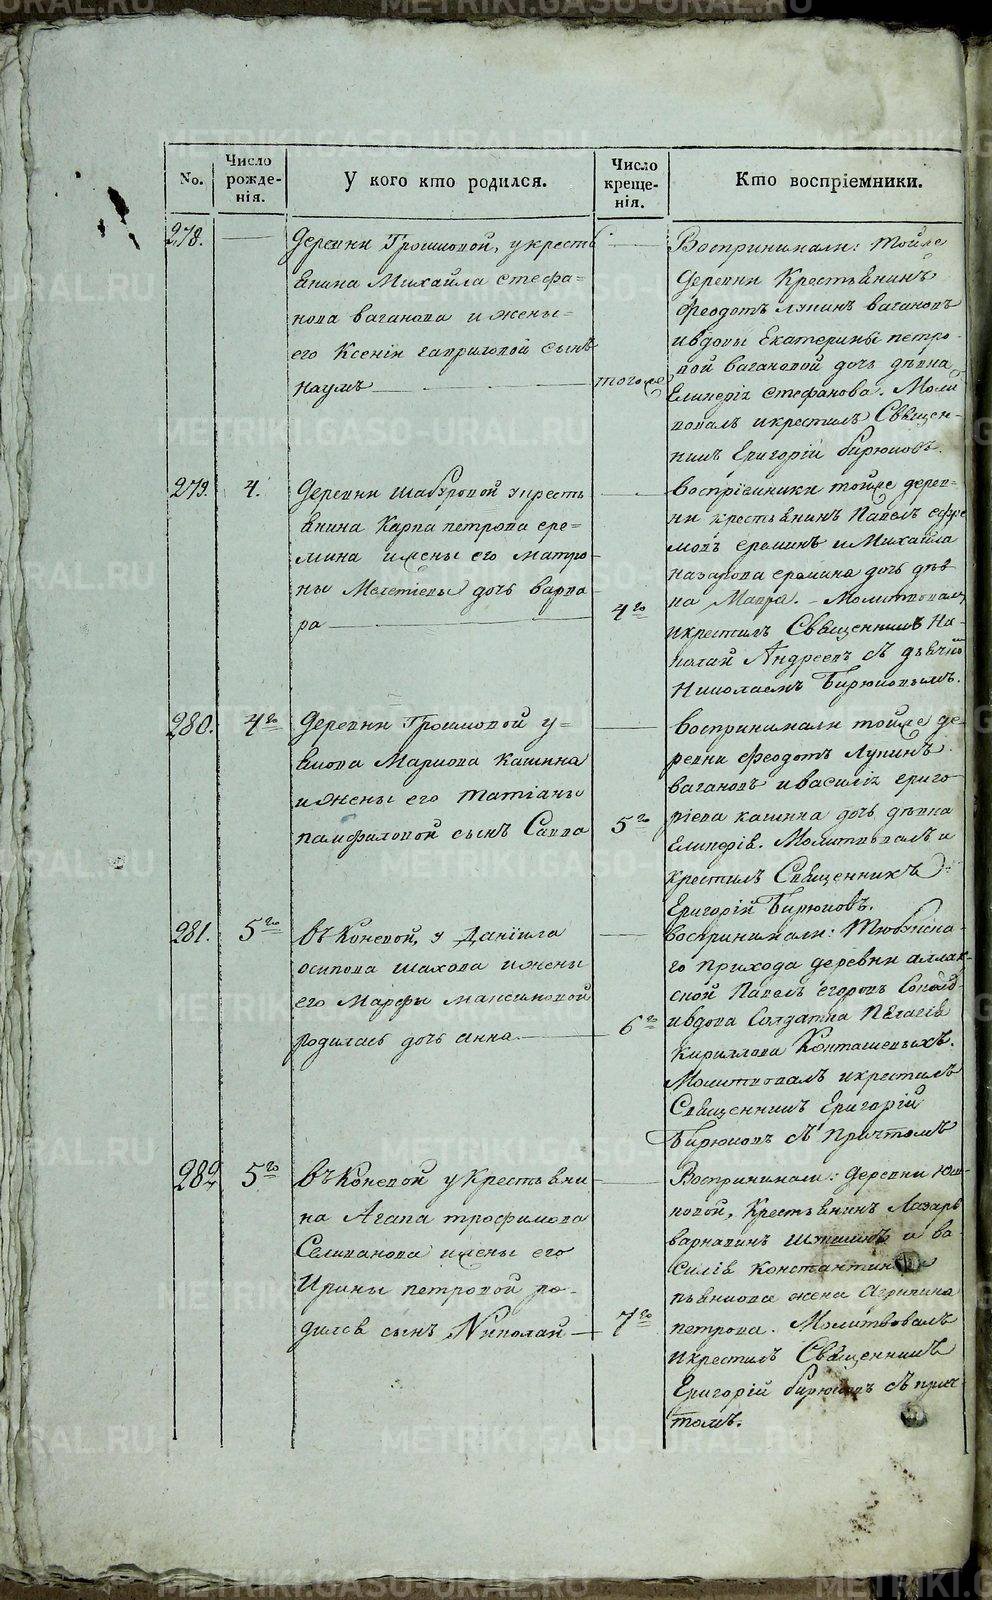 No.
Число рожде-нія.
У кого кто родился.
Число креще-нія.
Кто воспріемники.
278.
Деревни Грошиовой, у кресть
янина Михайла Стефа=
нова Ваганова и жены=
его Ксеніи Гавриловой сынъ
Наумъ
тогоже
Воспринимали: тойже
деревни Крестьянинъ
Феодотъ Лупинъ Вагановъ
и вдовы Екатерины Петро-
вой Вагановой дочь дѣвка
Стефанова. Моли
вовалъ и крестилъ Священ-
никъ Григорій Бирюковъ.
279.
4.
Деревни Шабуровой у кресть
янина Карпа Петрова Ере-
мина и жены его Матро
ны Мелетіевы дочь Варва
ра
4го
Воспріемники тойже дерев-
ни крестьянинъ Павелъ Ефре
мовъ Ереминъ и Михайла
Назарова Еремина дочь дѣв
ка Мавра. Молитвовалъ
и крестилъ Священникъ Ни-
колай Андреевъ съ дьячко
Николаемъ Бирюковымъ.
280.
4го
Деревни Грошиовой у Я=
кова Маркова Кашина
и жены его Татіаны
Памфиловой сынъ Савва
5го
Воспринимали тойже де
ревни Феодотъ Лупинъ
Вагановъ и Василія Григо
ріева Кашина дочь дѣвка
Молитвовалъ и
крестилъ Священникъ
Григорій Бирюковъ.
281.
5го
Въ Коневой, у Даніила
Осипова Шахова и жены
его Марфы Максимовой
родилась дочь Анна
6го
Воспринимали: Тюбукска-
го прихода деревни Аллак-
ской Павелъ Егоровъ
и вдова Солдатка Пелагія
Кириллова
Молитвовалъ и крестилъ
Священникъ Григорій
Бирюковъ съ Причтомъ
282
5го
Въ Коневой у Крестьяни
на Агапа Трофимова
Селиванова и жены его
Ирины Петровой ро-
дился сынъ Николай
7го
Воспринимали: деревни
Крестьянинъ Лазарь
Варнавинъ и Ва-
силія Константинова
жена Агрипина
Петрова. Молитвовалъ
и крестилъ Священникъ
Григорій Бирюковъ съ прич-
томъ.
METRIKI.GASO-URAL.RU